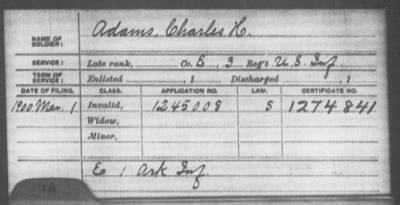 NAME OF SOLDIER: Adams, Charles H.
SERVICE: Late rank, Co. E, 3 Reg't U.S. Inf.
TERM OF SERVICE: Enlisted , 1 Discharged , 1
DATE OF FILING. CLASS. APPLICATION NO. LAW. CERTIFICATE NO.
1900 Mar. 1 Invalid, 1245008 S 1274841
Widow,
Minor,
E 1 Ark Inf.